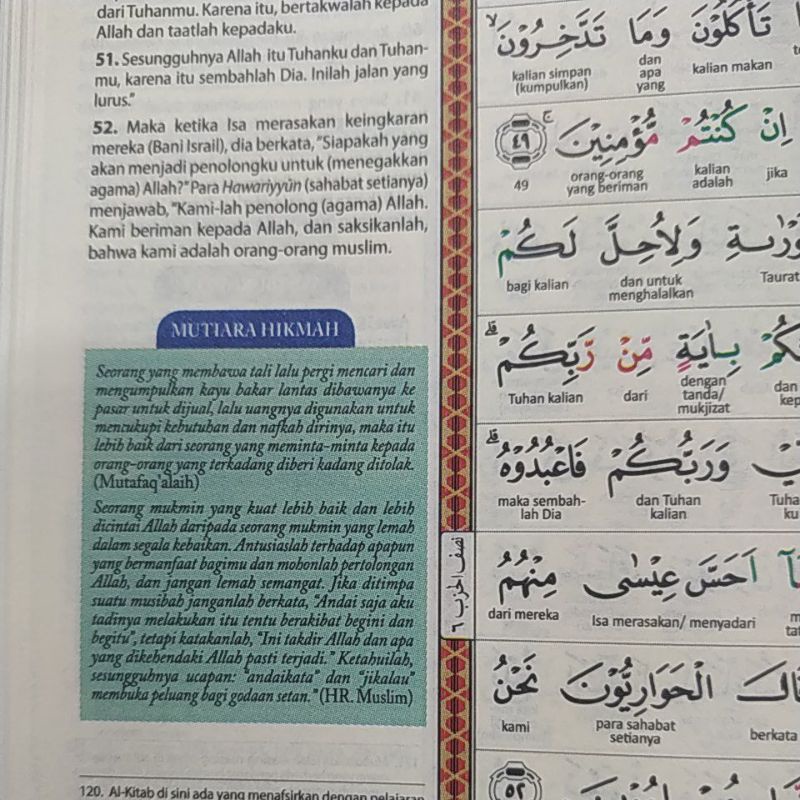 dari Tuhanmu. Karena itu, bertakwalah kepada
Allah dan taatlah kepadaku.
51. Sesungguhnya Allah itu Tuhanku dan Tuhan-
mu, karena itu sembahlah Dia. Inilah jalan yang
lurus."
52. Maka ketika Isa merasakan keingkaran
mereka (Bani Israil), dia berkata, "Siapakah yang
akan menjadi penolongku untuk (menegakkan
agama) Allah?" Para Hawariyyûn (sahabat setianya)
menjawab, "Kami-lah penolong (agama) Allah.
Kami beriman kepada Allah, dan saksikanlah,
bahwa kami adalah orang-orang muslim.
MUTIARA HIKMAH
Seorang yang membawa tali lalu pergi mencari dan
mengumpulkan kayu bakar lantas dibawanya ke
pasar untuk dijual, lalu uangnya digunakan untuk
mencukupi kebutuhan dan nafkah dirinya, maka itu
lebih baik dari seorang yang meminta-minta kepada
orang-orang yang terkadang diberi kadang ditolak.
(Mutafaq'alaih)
Seorang mukmin yang kuat lebih baik dan lebih
dicintai Allah daripada seorang mukmin yang lemah
dalam segala kebaikan. Antusiaslah terhadap apapun
yang bermanfaat bagimu dan mohonlah pertolongan
Allah, dan jangan lemah semangat. Jika ditimpa
suatu musibah janganlah berkata, "Andai saja aku
tadinya melakukan itu tentu berakibat begini dan
begitu", tetapi katakanlah, "Ini takdir Allah dan apa
yang dikehendaki Allah pasti terjadi." Ketahuilah,
sesungguhnya ucapan: "andaikata" dan "jikalau"
membuka peluang bagi godaan setan." (HR. Muslim)
120. Al-Kitab di sini ada yang menafsirkan dengan pelajaran
تَأْكُلُوْنَ وَمَا تَدَّخِرُوْنَۙ
kalian makan
dan apa yang
kalian simpan (kumpulkan)
اِنْ كُنْتُمْ مُّؤْمِنِيْنَۚ ٤٩
jika
kalian adalah
orang-orang yang beriman
49
وَلِاُحِلَّ لَكُمْ
Taurat
dan untuk menghalalkan
bagi kalian
بِاٰيَةٍ مِّنْ رَّبِّكُمْۗ
dan
dengan tanda/ mukjizat
dari
Tuhan kalian
وَرَبُّكُمْ فَاعْبُدُوْهُۗ
dan Tuhan kalian
maka sembah-lah Dia
نصف الحزب ٦
اَحَسَّ عِيْسٰى مِنْهُمُ
Isa merasakan/ menyadari
dari mereka
قَالَ الْحَوَارِيُّوْنَ نَحْنُ
berkata
para sahabat setianya
kami
٥٢